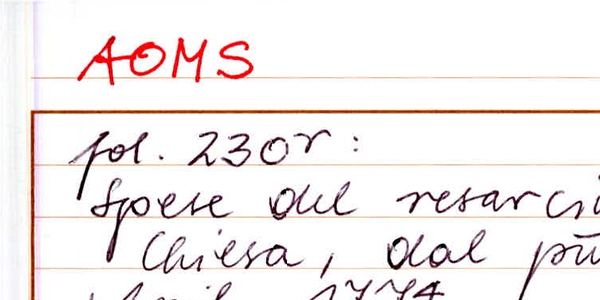 AOMS
fol. 230r:
Spese del resarci
Chiesa, dal
1774